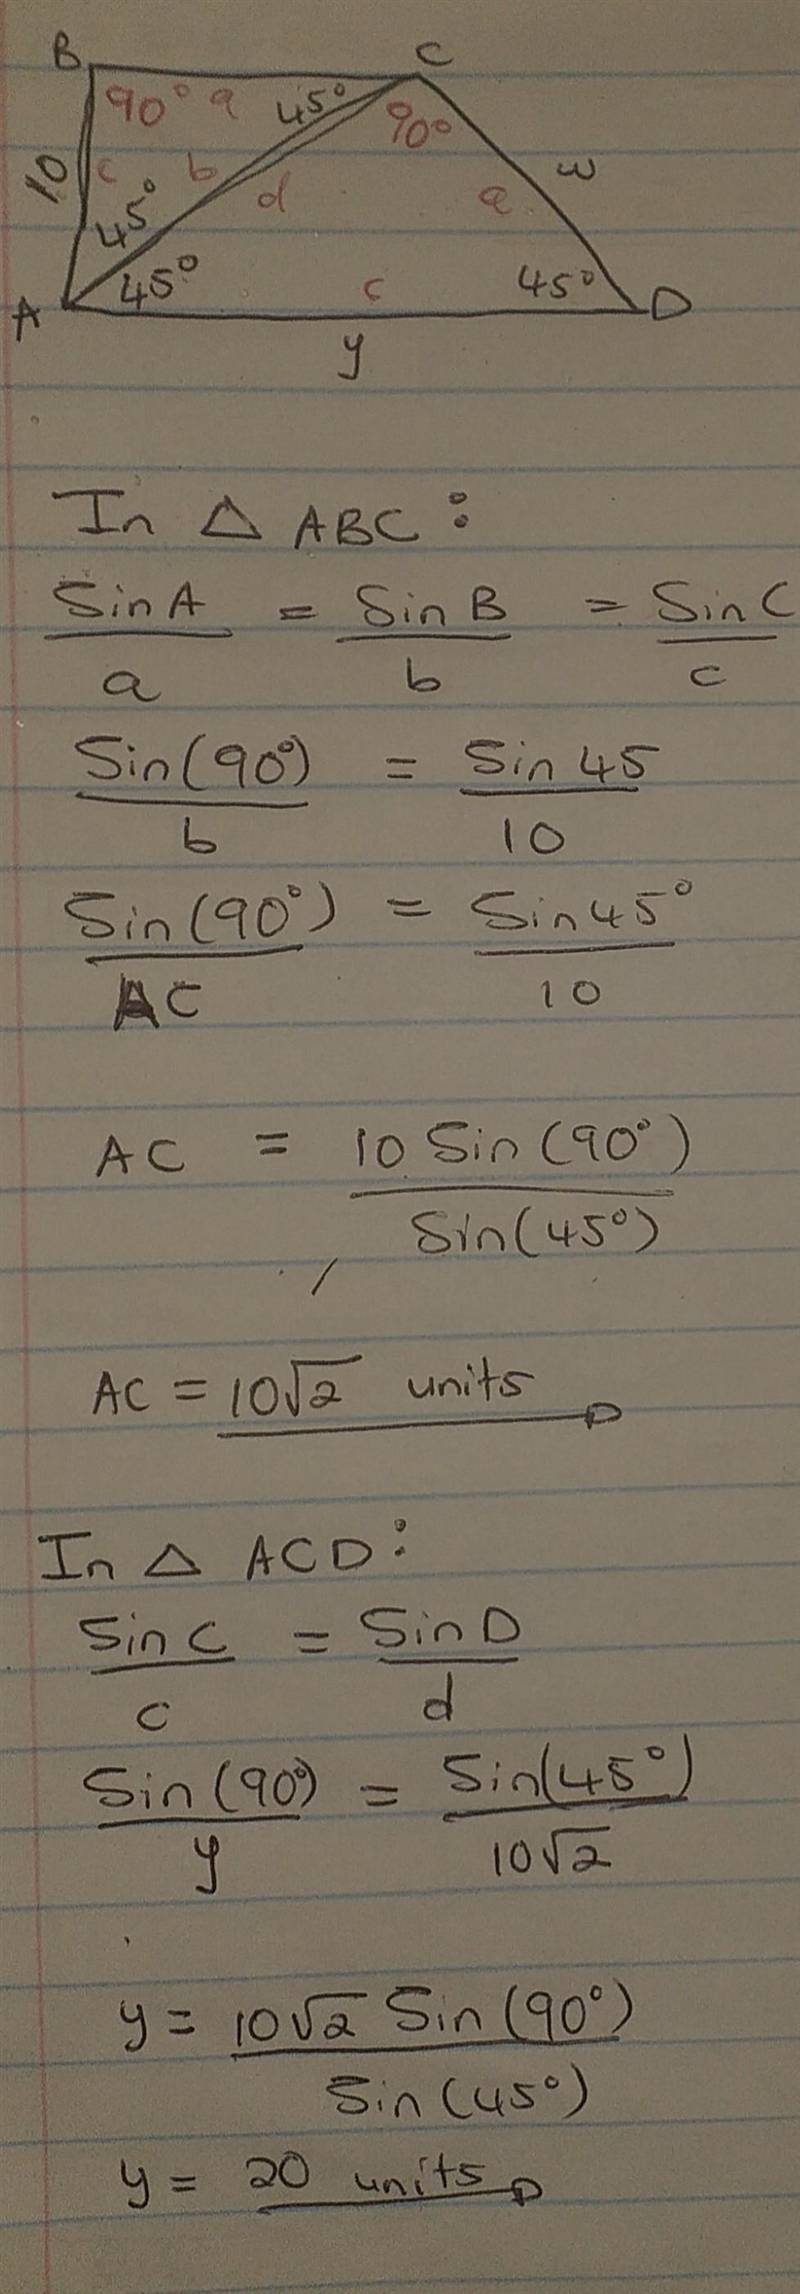 B C
90° a 45° 90°
10 c b d a w
45°
45° c 45°
A D
y
In △ ABC :
Sin A = Sin B = Sin C
a b c
Sin(90°) = Sin 45
b 10
Sin(90°) = Sin 45°
AC 10
AC = 10 Sin(90°)
Sin(45°)
AC = 10√2 units
In △ ACD :
Sin C = Sin D
c d
Sin(90°) = Sin(45°)
y 10√2
y = 10√2 Sin(90°)
Sin(45°)
y = 20 units